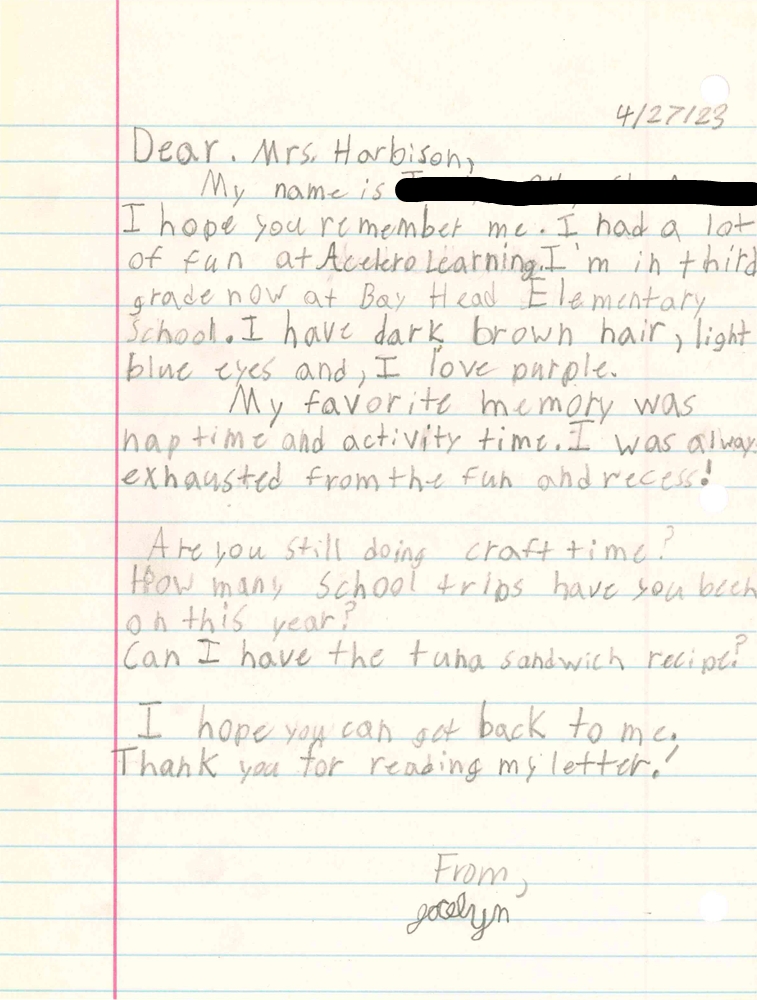 4/27/23
Dear. Mrs. Harbison,
My name is
I hope you remember me. I had a lot
of fun at Acelero Learning. I'm in third
grade now at Bay Head Elementary
School. I have dark brown hair, light
blue eyes and, I love purple.
My favorite memory was
nap time and activity time. I was alway
exhausted from the fun and recess!
Are you still doing craft time?
How many school trips have you been
on this year?
Can I have the tuna sandwich recipe?
I hope you can get back to me.
Thank you for reading my letter!
From,
Jocelyn